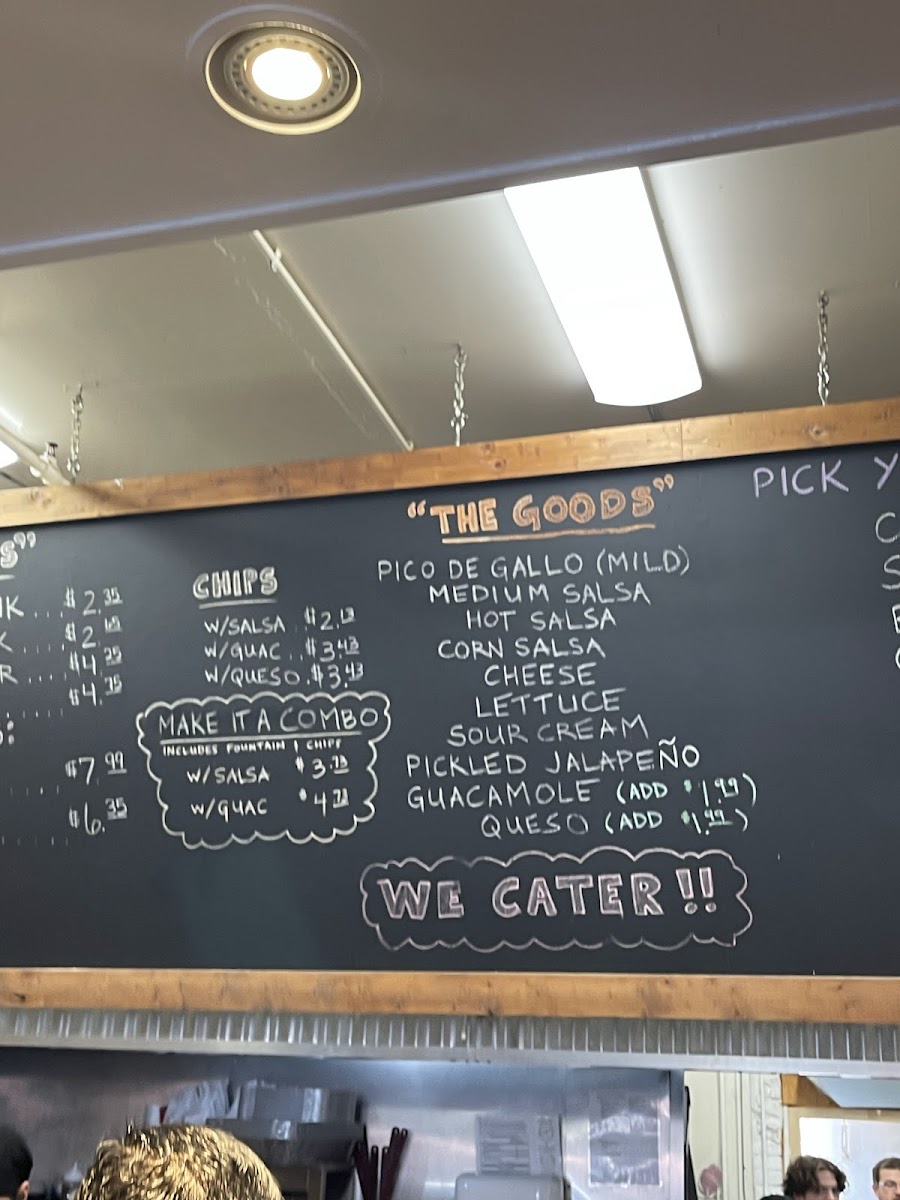 S"
K ... $2.35
K .... $2.
R .... $4.25
..... $4.75
:
.... $7.99
..... $6.35
CHIPS
W/SALSA .. $2.13
W/GUAC .. $3.43
W/QUESO . $3.43
MAKE IT A COMBO
INCLUDES FOUNTAIN & CHIPS
W/SALSA $3.73
W/GUAC $4.73
"THE GOODS"
PICO DE GALLO (MILD)
MEDIUM SALSA
HOT SALSA
CORN SALSA
CHEESE
LETTUCE
SOUR CREAM
PICKLED JALAPEÑO
GUACAMOLE (ADD $1.99)
QUESO (ADD $1.99)
WE CATER!!
PICK Y
C
S